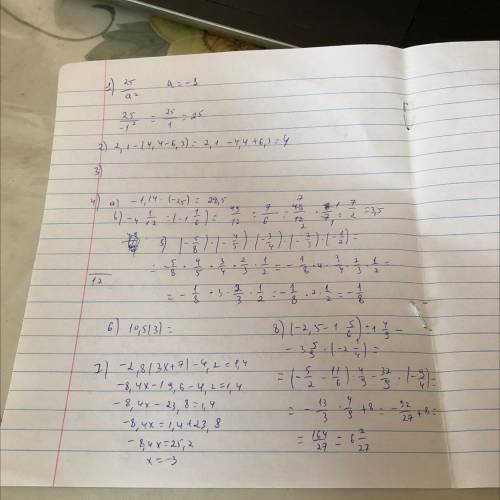 1) 25/a² a = -1
25/-1² = 25/1 = 25
2) 2,1-(4,4-6,3) = 2,1 -4,4+6,3 = 4
3)
4) а) -1,14 · (-25) = 28,5
б) -4 1/12 : (-1 1/6) = 49/12 : 7/6 = 49/12 · 6/7 = 7/2 = 3,5
5) (-5/8) · (-4/5) · (-3/4) · (-2/3) · (-1/2) =
= 5/8 · 4/5 · 3/4 · 2/3 · 1/2 = -1/8 · 4 · 3/4 · 2/3 · 1/2 =
12
= -1/8 · 3 · 2/3 · 1/2 = -1/8 · 2 · 1/2 = -1/8
6) 10,5(3) =
7) -2,8(3x+7) -4,2 = 1,4
-8,4x -19,6 -4,2 = 1,4
-8,4x -23,8 = 1,4
-8,4x = 1,4+23,8
-8,4x = 25,2
x = -3
8) (-2,5 -1 5/6) · 1 4/9 -
-3 5/9 · (-2 1/4) =
= (-5/2 - 11/6) · 4/9 - 32/9 · (-9/4) =
= -13/3 · 4/9 + 8 = -52/27 + 8 =
= 164/27 = 6 2/27